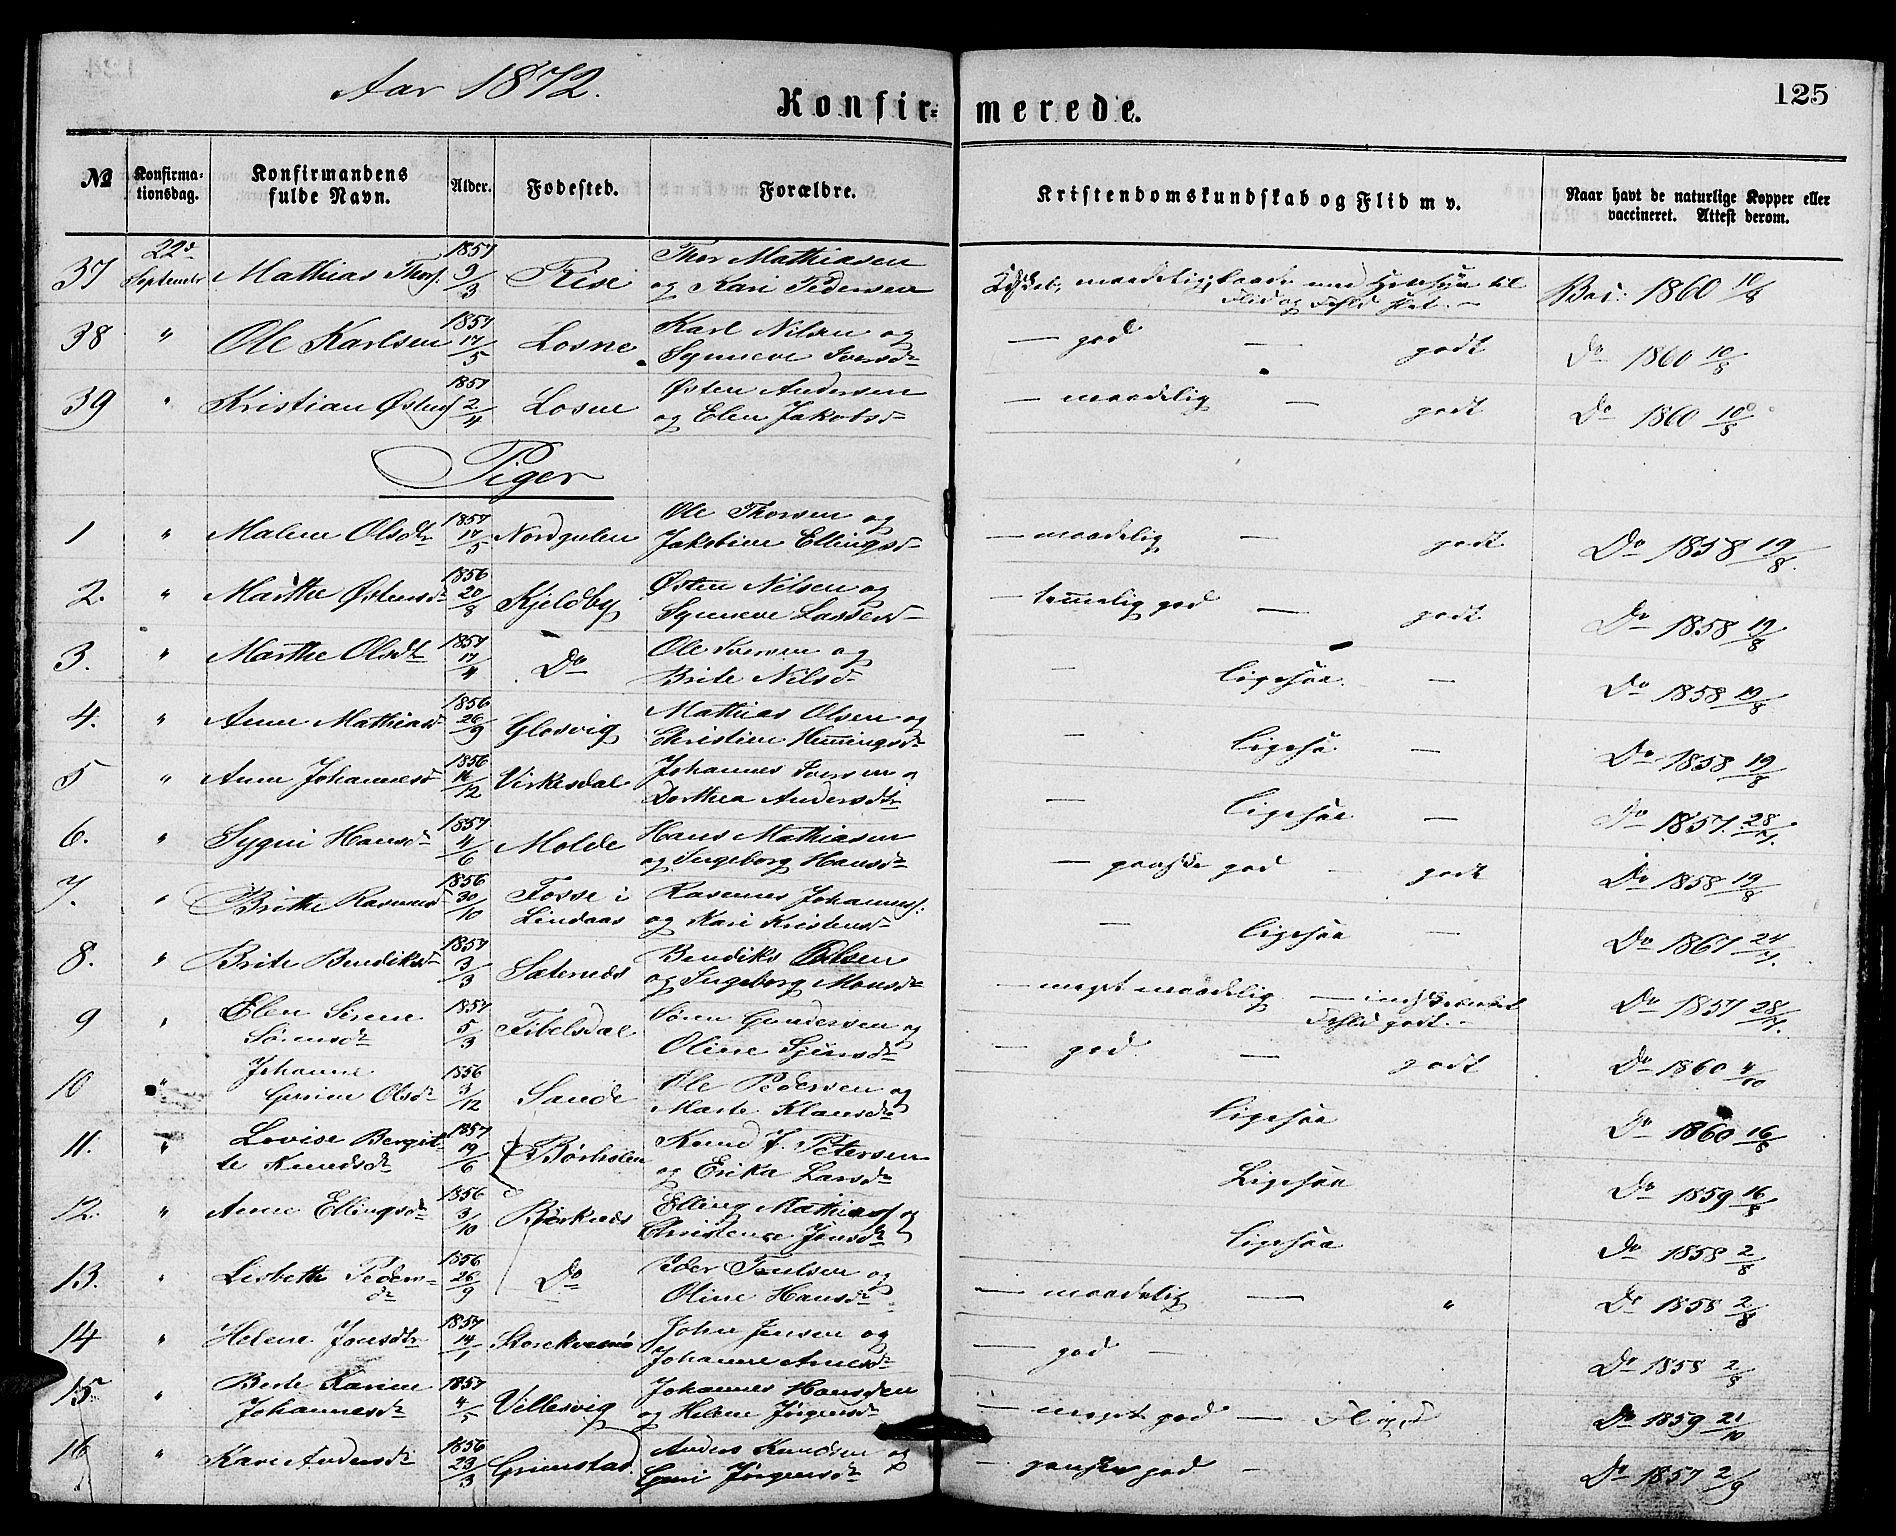 Aar 1872.
Konfirmerede.
125
№ Konfirmationsdag. Konfirmandens fulde Navn. Alder. Fødested. Forældre. Kristendomskundskab og Flid m v. Naar havt de naturlige Kopper eller vaccineret. Attest derom.
37 22d September Mathias Thors. 1857 9/3 Risi Thor Mathiasen og Kari Pedersen maadelig, Vac: 1860 10/8
38 " Ole Karlsen 1857 17/5 Losne Karl Nilsen og Synneve Iversdr — god — godt Do 1860 10/8
39 " Kristian Østens 1857 2/4 Losne Østen Andersen og Elen Jakobsd — maadelig — godt Do 1860 10/8
Piger
1 " Malene Olsdtr 1857 17/5 Nordgulen Ole Thorsen og Jakobine Ellingsd — maadelig — godt Do 1858 19/8
2. " Marthe Østensdr 1856 20/8 Kjeldby Østen Nilsen og Synneve Lassesd — temmelig god — godt Do 1858 19/8
3. " Marthe Olsdt 1857 17/4 Do Ole Iversen og Brite Nilsd — ligesaa — Do 1858 19/8
4. " Anne Mathiasd 1856 26/9 Glosvig Mathias Olsen og Christine Hemingsdr — ligesaa — Do 1858 19/8
5 " Anne Johannesd 1856 16/12 Virkesdal Johannes Iversen og Dorthea Andersdtr — ligesaa — Do 1857 28/7
6. " Sygni Hansdr 1857 4/6 Molde Hans Mathiasen og Ingeborg Hansdr — ganske god — godt Do 1858 19/8
7. " Brithe Rasmusd 1856 30/10 Fosse i Lindaas Rasmus Johanness: og Kari Kristensd — ligesaa — Do 1867 24/7
8. " Brite Bendiksd 1857 3/3 Sætenæs Bendiks Olsen og Ingeborg Monsdr — meget maadelig — godt Do 1857 28/7
9 " Elen Sirine Sørensdr 1857 5/3 Tibelsdal Søren Gundersen og Oline Sjursdr — god — godt Do 1860 4/10
10 " Johanne Gurine Olsdr 1856 3/12 Sande Ole Pedersen og Marte Klausdr ligesaa Do 1860 16/8
11. " Lovise Bergitte Knudsdr 1857 19/6 Børholen Knud J. Petersen og Erika Larsdr Ligesaa Do 1859 16/8
12. " Anne Ellingsdr 1856 3/10 Birknæs Elling Mathias og Christence Jonsdr ligesaa Do 1858 2/8
13. " Lisbeth Pedersdr 1856 26/9 Do Peder Poulsen og Oline Hansdr — maadelig — " Do 1858 2/8
14 " Helene Jonsdtr 1857 14/1 John Jensen og Johanne Arnesdr — god — Do 1858 2/8
15 " Berte Karine Johannesdr 1857 4/5 Vellesvig Johannes Hansøen og Helene Jørgensdr — meget god — Do 1859 21/10
16 " Kari Andersdr 1856 23/3 Grimstad. Anders Knudsen og Guri Jørgensdr — ganske god — Do 1857 2/9